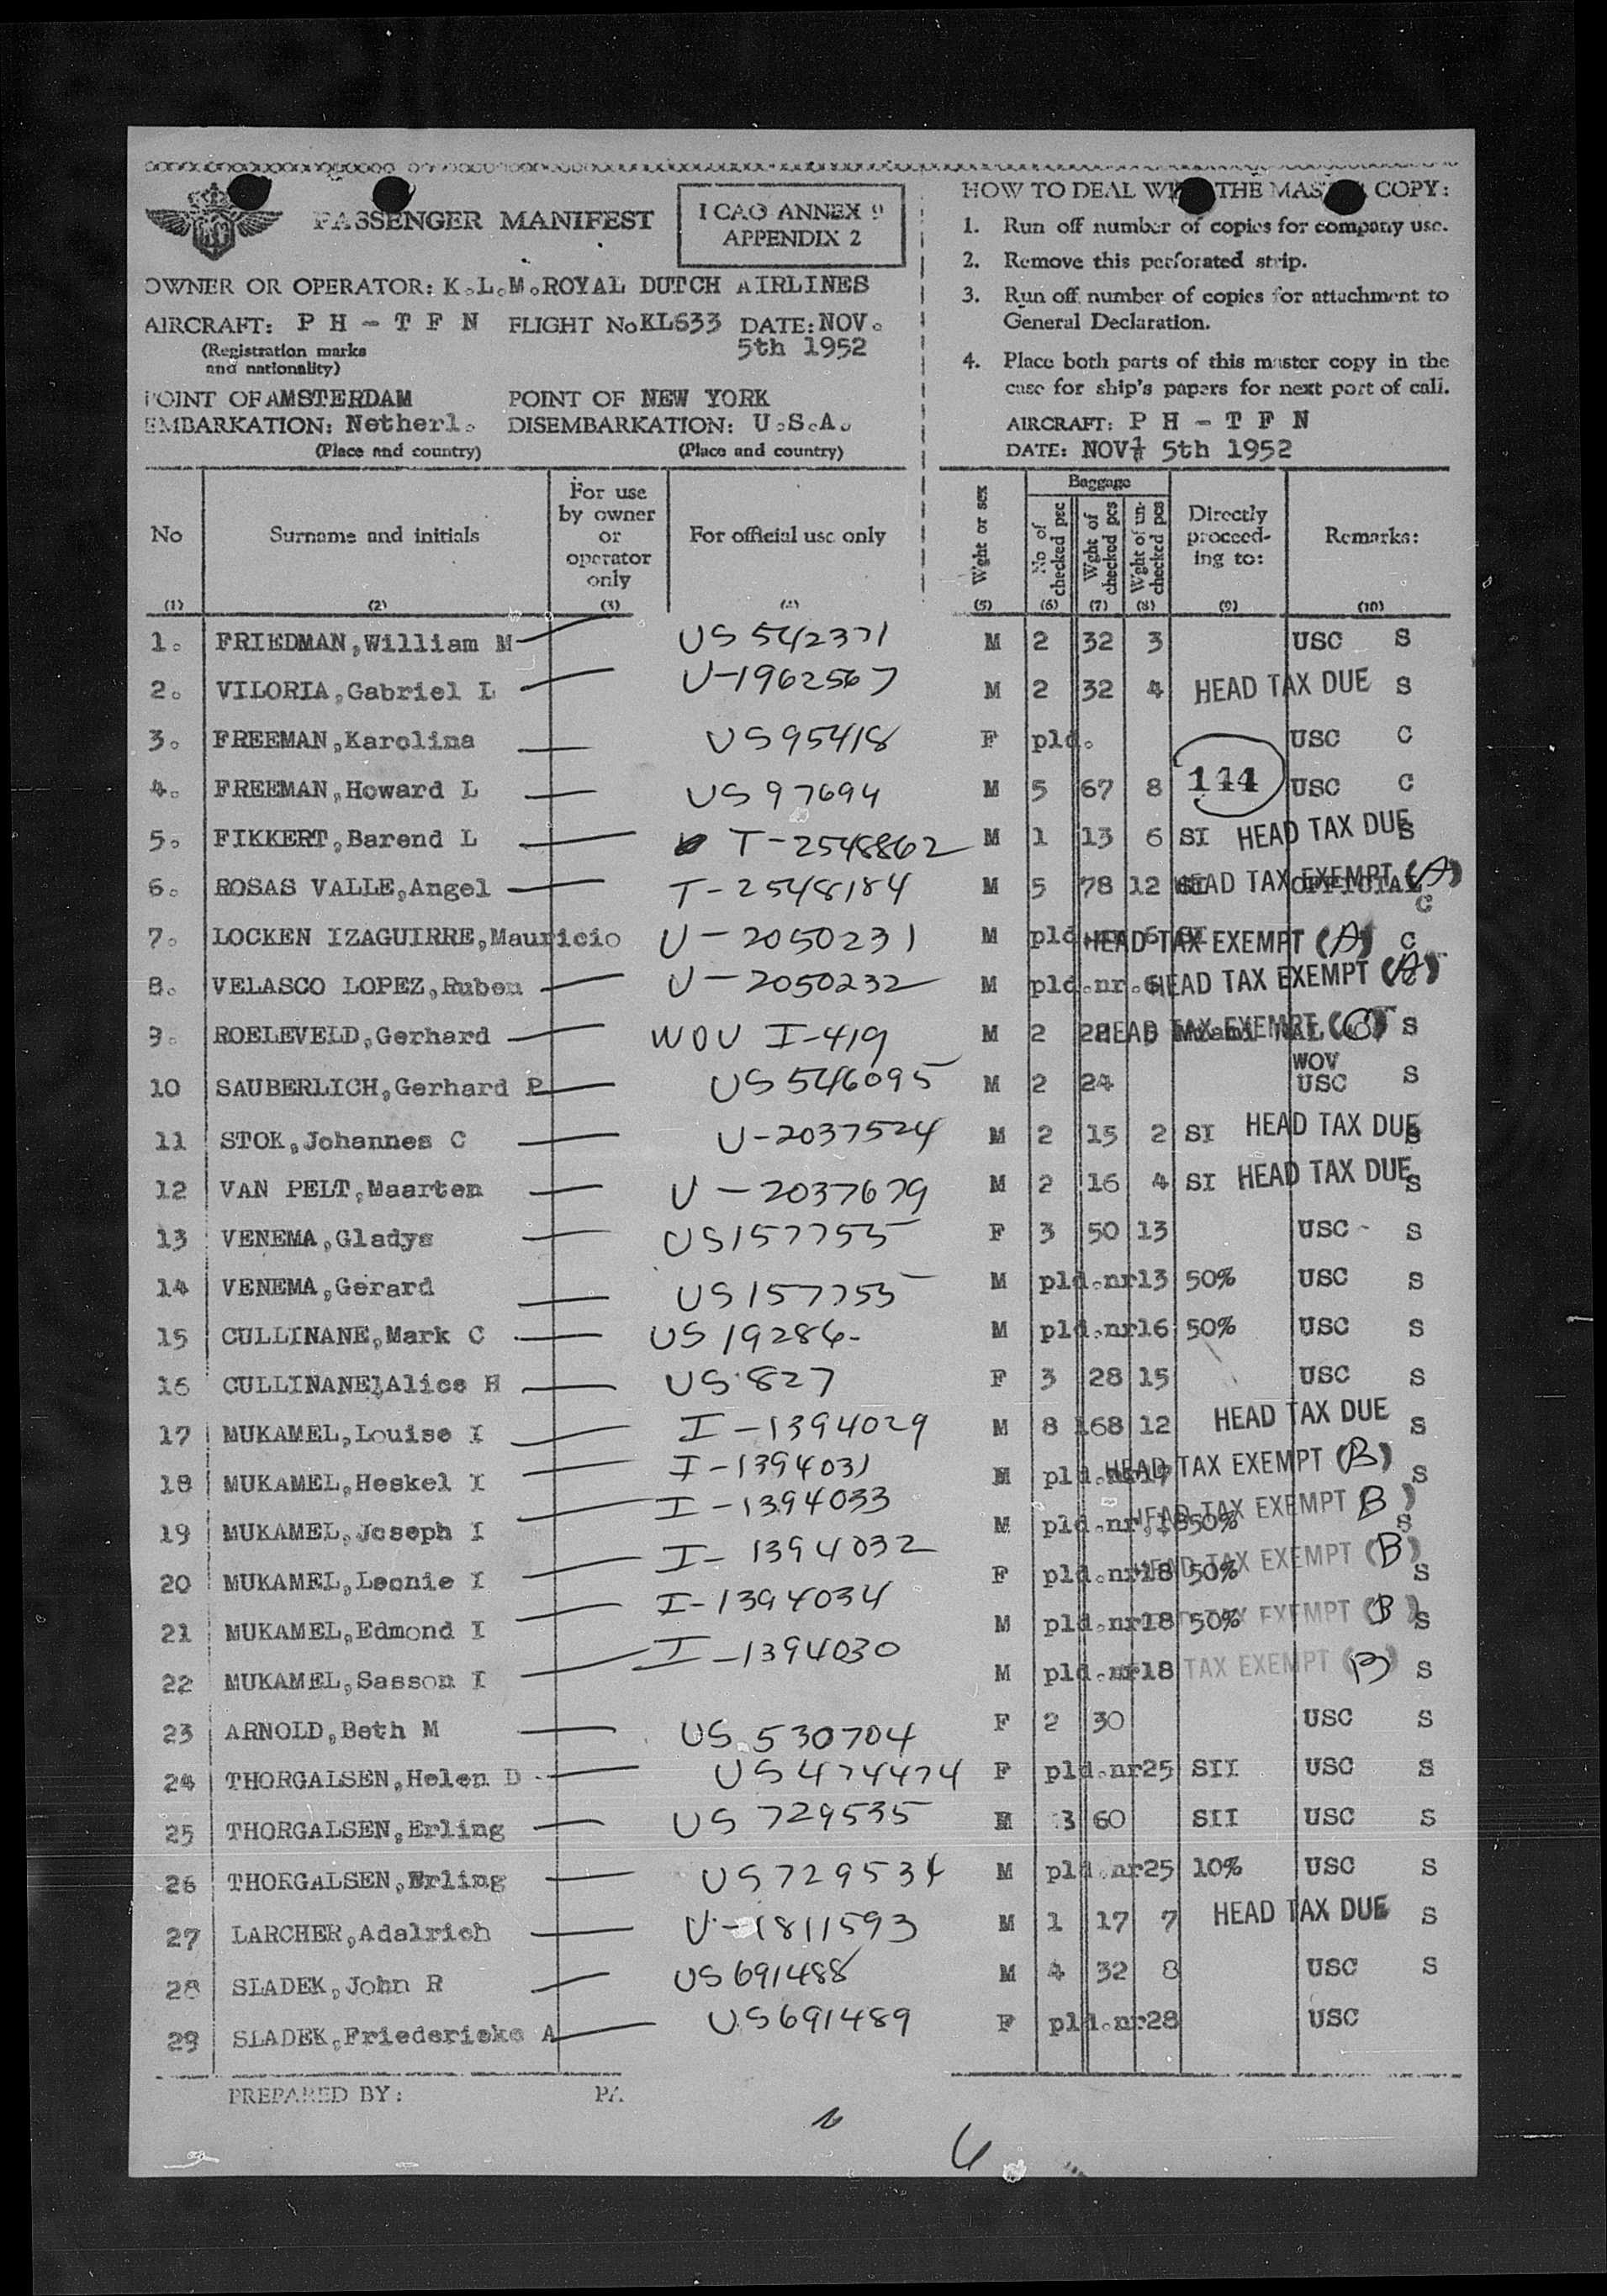 PASSENGER MANIFEST
I CAO ANNEX 9
APPENDIX 2
OWNER OR OPERATOR: K.L.M.ROYAL DUTCH AIRLINES
AIRCRAFT: P H - T F N FLIGHT No KL633 DATE: NOV.
5th 1952
(Registration marks
and nationality)
POINT OF AMSTERDAM POINT OF NEW YORK
EMBARKATION: Netherl. DISEMBARKATION: U.S.A.
(Place and country) (Place and country)
HOW TO DEAL WITH THE MASTER COPY:
1. Run off number of copies for company use.
2. Remove this perforated strip.
3. Run off number of copies for attachment to
General Declaration.
4. Place both parts of this master copy in the
case for ship's papers for next port of call.
AIRCRAFT: P H - T F N
DATE: NOV 5th 1952
No Surname and initials For use by owner or operator only For official use only Wght or sex Baggage No of checked pec Wght of checked pcs Wght of un-checked pcs Directly proceed-ing to: Remarks:
(1) (2) (3) (4) (5) (6) (7) (8) (9) (10)
1. FRIEDMAN,William M US 542371 M 2 32 3 USC S
2. VILORIA,Gabriel L U-1962567 M 2 32 4 HEAD TAX DUE S
3. FREEMAN,Karolina US 95418 F pld. USC C
4. FREEMAN,Howard L US 97694 M 5 67 8 144 USC C
5. FIKKERT,Barend L T-2548862 M 1 13 6 SI HEAD TAX DUE S
6. ROSAS VALLE,Angel T-2548184 M 5 78 12 SI HEAD TAX EXEMPT (A) OFFICIAL C
7. LOCKEN IZAGUIRRE,Mauricio U-2050231 M pld.nr 6 SI HEAD TAX EXEMPT (A) C
8. VELASCO LOPEZ,Ruben U-2050232 M pld.nr.6 HEAD TAX EXEMPT (A) C
9. ROELEVELD,Gerhard WOV I-419 M 2 HEAD TAX EXEMPT S
WOV
10 SAUBERLICH,Gerhard P US 546095 M 2 24 USC S
11 STOK,Johannes C U-2037524 M 2 15 2 SI HEAD TAX DUE S
12 VAN PELT,Maarten U-2037679 M 2 16 4 SI HEAD TAX DUE S
13 VENEMA,Gladys US 157755 F 3 50 13 USC S
14 VENEMA,Gerard US 157755 M pld.nr13 50% USC S
15 CULLINANE,Mark C US 19286 M pld.nr16 50% USC S
16 CULLINANE,Alice H US 827 F 3 28 15 USC S
17 MUKAMEL,Louise I I-1394029 M 8 168 12 HEAD TAX DUE S
18 MUKAMEL,Heskel I I-1394031 M pld.nr17 HEAD TAX EXEMPT (B) S
19 MUKAMEL,Joseph I I-1394033 M pld.nr.18 50% HEAD TAX EXEMPT (B) S
20 MUKAMEL,Leonie I I-1394032 F pld.nr18 50% HEAD TAX EXEMPT (B) S
21 MUKAMEL,Edmond I I-1394034 M pld.nr18 50% TAX EXEMPT (B) S
22 MUKAMEL,Sasson I I-1394030 M pld.nr18 TAX EXEMPT (B) S
23 ARNOLD,Beth M US 530704 F 2 30 USC S
24 THORGALSEN,Helen D US 474474 F pld.nr25 SII USC S
25 THORGALSEN,Erling US 729535 M 3 60 SII USC S
26 THORGALSEN,Erling US 729534 M pld.nr25 10% USC S
27 LARCHER,Adalrich U-1811593 M 1 17 7 HEAD TAX DUE S
28 SLADEK,John R US 691488 M 4 32 8 USC S
29 SLADEK,Friederieke A US 691489 F pld.nr28 USC
PREPARED BY: PA
6